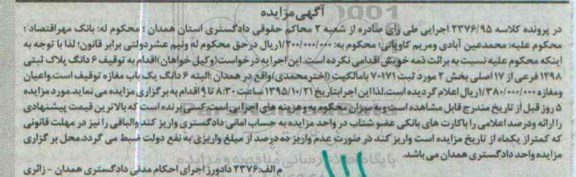 آگهی مزایده
در پرونده کلاسه ۲۳۷۶/۹۵ اجرایی طی رای صادره از شعبه ۲ محاکم حقوقی دادگستری استان همدان؛ محکوم له: بانک مهر اقتصاد؛
محکوم علیه: محمدعین آبادی ومریم کاویانی؛ محکوم به: ۱/۲۰۰/۰۰۰/۰۰۰ریال درحق محکوم له ونیم عشردولتی برابر قانون؛ لذا با توجه به
اینکه محکوم علیه نسبت به برائت ذمه خویش اقدامی نکرده است.این اجرا به درخواست(وکیل خواهان)اقدام به توقیف ۶ دانگ پلاک ثبتی
۱۲۹۸ فرعی از ۱۷اصلی بخش ۲ مورد ثبت ۷۰۱۷۱ بامالکیت (اخترمحمدی)واقع در همدان:البته ۶ دانگ یک باب مغازه توقیف است.واعیان
ومغازه ۱/۳۸۰/۰۰۰/۰۰۰ریال اعلام گردیده است.لذا این اجراتاریخ ۱۳۹۵/۱۰/۲۱ ساعت ۸:۳۰ تا ۹ اقدام به برگزاری مزایده می نماید.مورد مزایده
۵ روز قبل از تاریخ مندرج قابل مشاهده است وبه میزان محکوم به وهزینه های اجرایی است.کسی برنده است که بالاترین قیمت پیشنهادی
را ارائه ودرصد اعلامی را باکارت های بانکی عضو شتاب در واحد مزایده به حساب امانی دادگستری واریز کند والباقی را نیز در مهلت قانونی
که کمتراز یکماه از تاریخ مزایده است واریز کند.در صورت عدم واریز ده درصد از مبلغ واریزی به نفع دولت ضبط می گردد.محل برگزاری
مزایده واحد دادگستری همدان می باشد.
م الف:۲۳۷۶ دادورز اجرای احکام مدنی دادگستری همدان - زائری